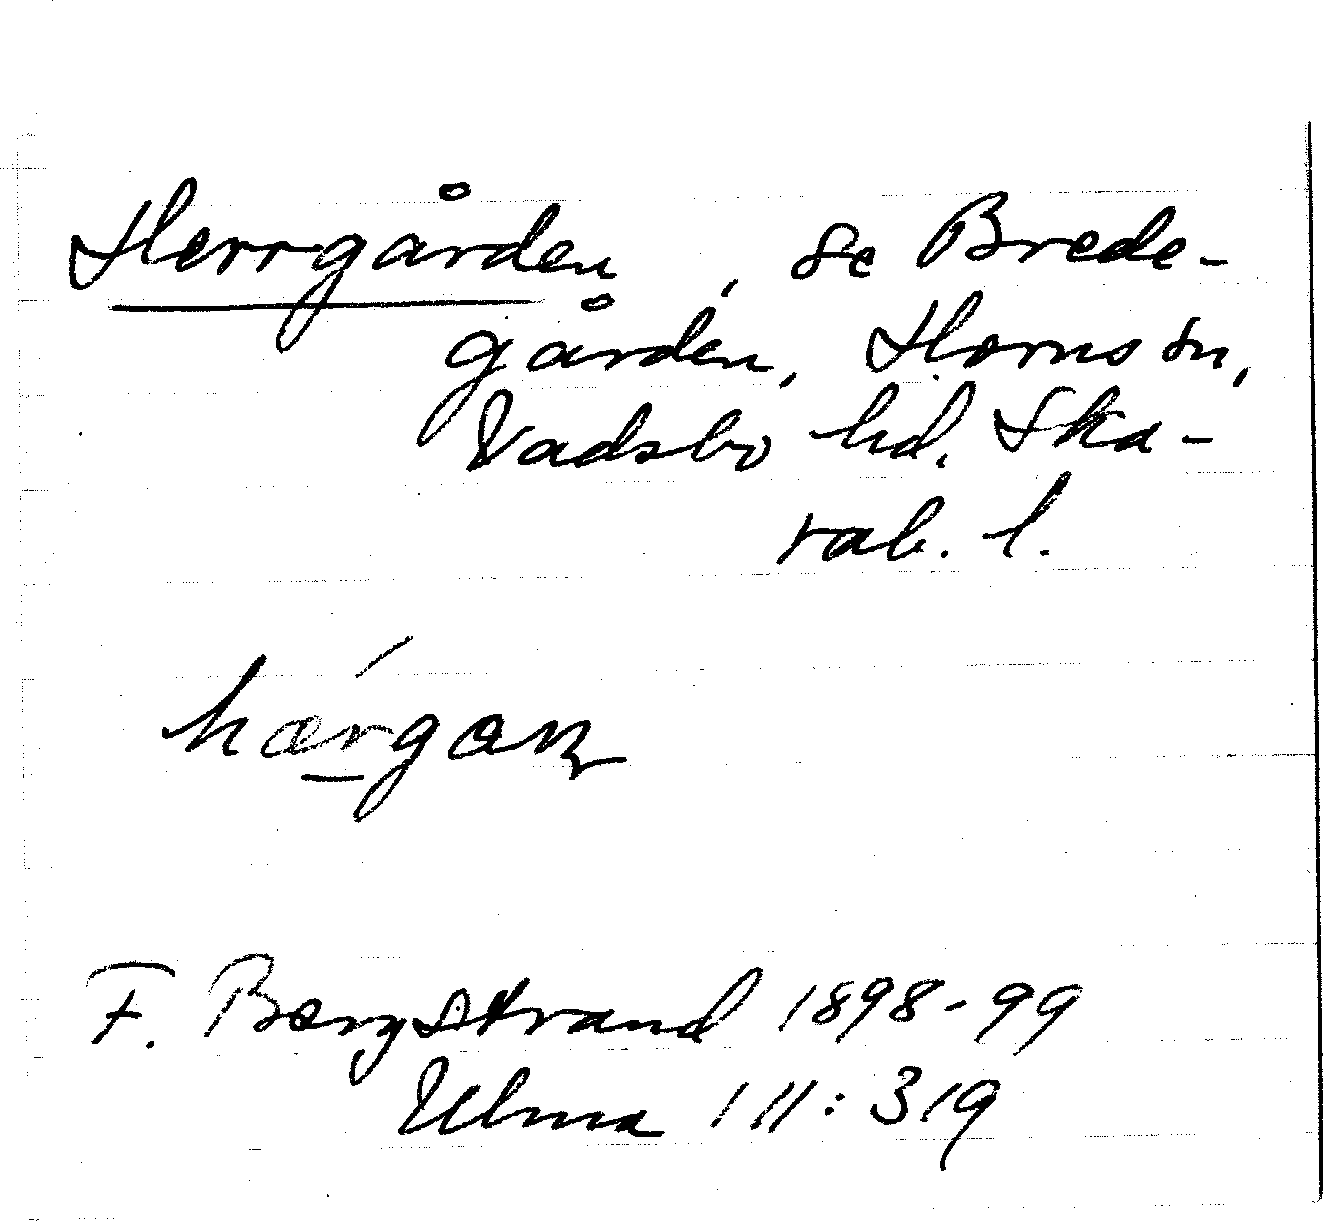 Herrgården, se Brede-
gården, Horns sn,
Vadsbo hd. Ska-
rab. l.
F. Bergstrand 1898-99
Ulma 111:319